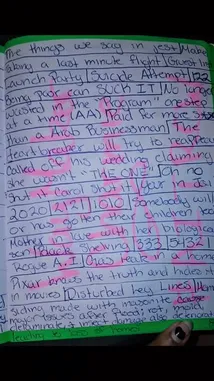 The things we say in jest|Make
taking a last minute flight|Guest list
Launch Party|Suicide Attempt|122
Being poor can SUCH IT|No longer
wasted in the "Program" one step
at a time (AA)|Paid for more
than a Arab Businessman|The
Heartbreaker will try to reappear
called off his wedding claiming
she wasn't "THE ONE"|Oh no
Shut it Carol shut it|your in
2020|2121|1010|Somebody will
or has gotten their children
Mother in love with her biological
son|Shelving|333|5432|
"Rogue A.I|Gas Leak in a home
Pixar knows the truth and hides it
in movies|Disturbed key Lines|Home
siding made with masonite cause
major issues after flood rot, mold
also
leading to loss of homes